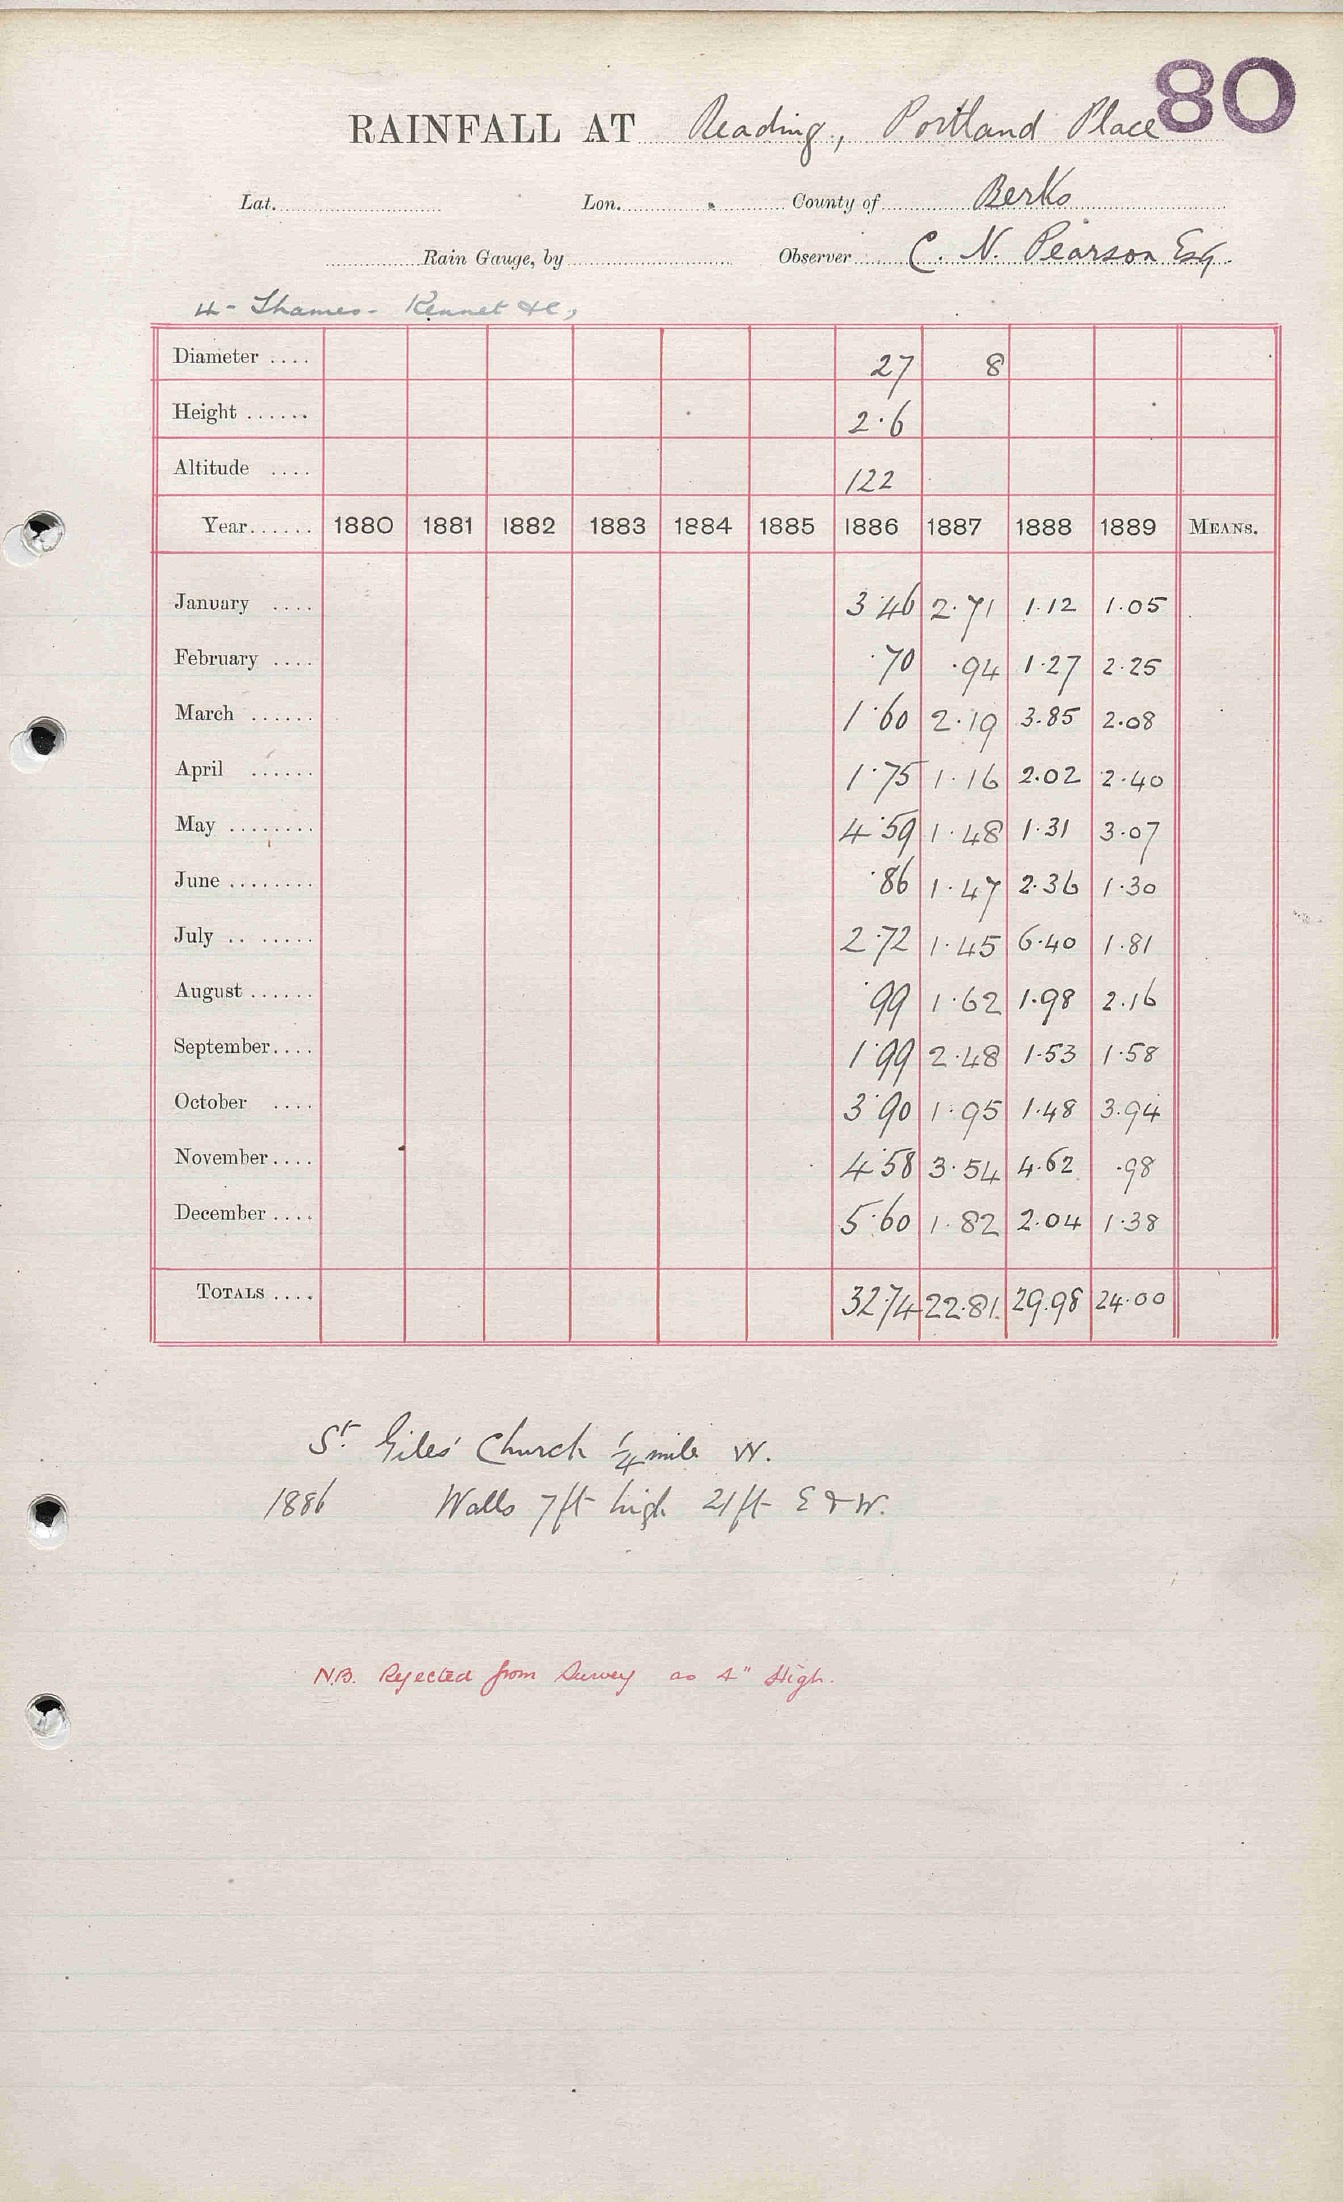 80
RAINFALL AT Reading, Portland Place
Lat. Lon. County of Berks
Rain Gauge, by Observer C. N. Pearson Esq.
4 - Thames - Kennet &c,
Diameter .... 27 8
Height ...... 2.6
Altitude .... 122
Year...... 1880 1881 1882 1883 1884 1885 1886 1887 1888 1889 MEANS.
January .... 3.46 2.71 1.12 1.05
February .... .70 .94 1.27 2.25
March ...... 1.60 2.19 3.85 2.08
April ...... 1.75 1.16 2.02 2.40
May ........ 4.59 1.48 1.31 3.07
June ........ .86 1.47 2.36 1.30
July .. ..... 2.72 1.45 6.40 1.81
August ...... .99 1.62 1.98 2.16
September.... 1.99 2.48 1.53 1.58
October .... 3.90 1.95 1.48 3.94
November.... 4.58 3.54 4.62 .98
December .... 5.60 1.82 2.04 1.38
TOTALS .... 32.74 22.81 29.98 24.00
St. Giles' Church 1/4 mile W.
1886 Walls 7ft high 21ft E & W.
N.B. Rejected from Survey as 4" High.